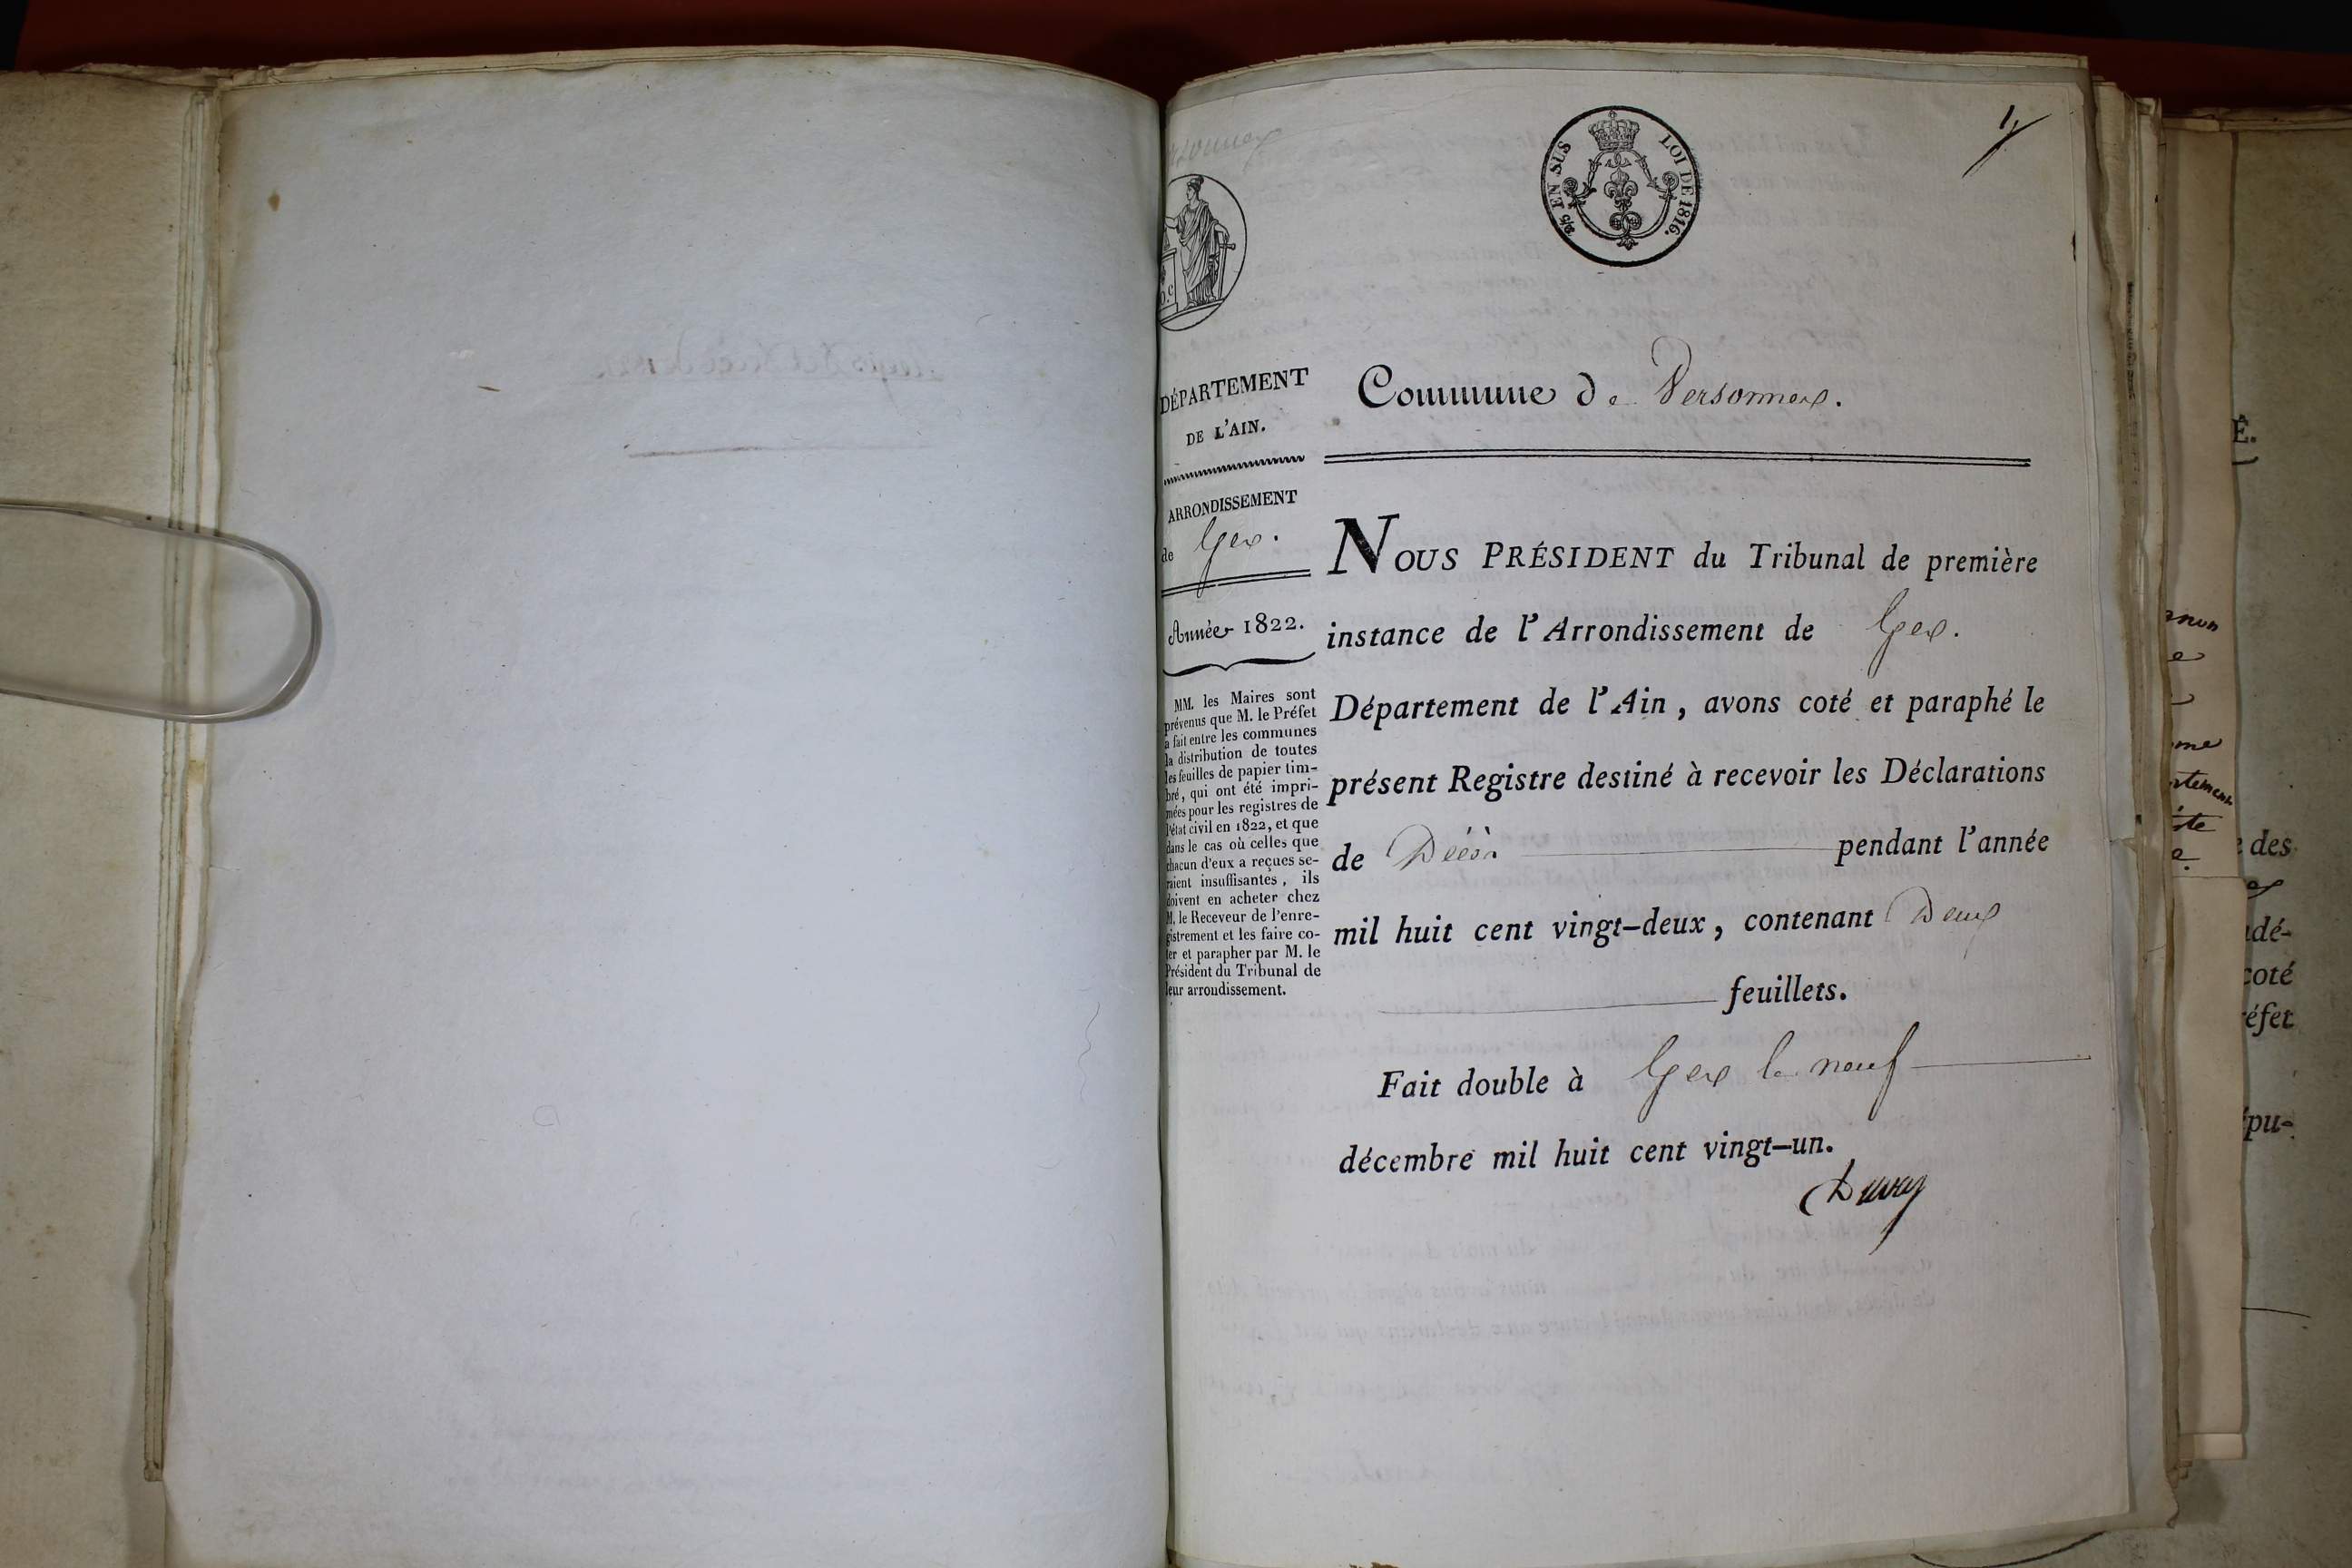 1
1/10 EN SUS LOI DE 1816.
DÉPARTEMENT
DE L'AIN.
ARRONDISSEMENT
de Gex.
Année 1822.
MM. les Maires sont
prévenus que M. le Préfet
a fait entre les communes
la distribution de toutes
les feuilles de papier tim-
bré, qui ont été impri-
mées pour les registres de
l'état civil en 1822, et que
dans le cas où celles que
chacun d'eux a reçues se-
raient insuffisantes, ils
doivent en acheter chez
M. le Receveur de l'enre-
gistrement et les faire co-
ter et parapher par M. le
Président du Tribunal de
leur arrondissement.
Commune de Versonnex.
NOUS PRÉSIDENT du Tribunal de première
instance de l'Arrondissement de Gex.
Département de l'Ain, avons coté et paraphé le
présent Registre destiné à recevoir les Déclarations
de Décès pendant l'année
mil huit cent vingt-deux, contenant Deux
feuillets.
Fait double à Gex le neuf
décembre mil huit cent vingt-un.
É.
des
dé-
coté
éfet
pu-